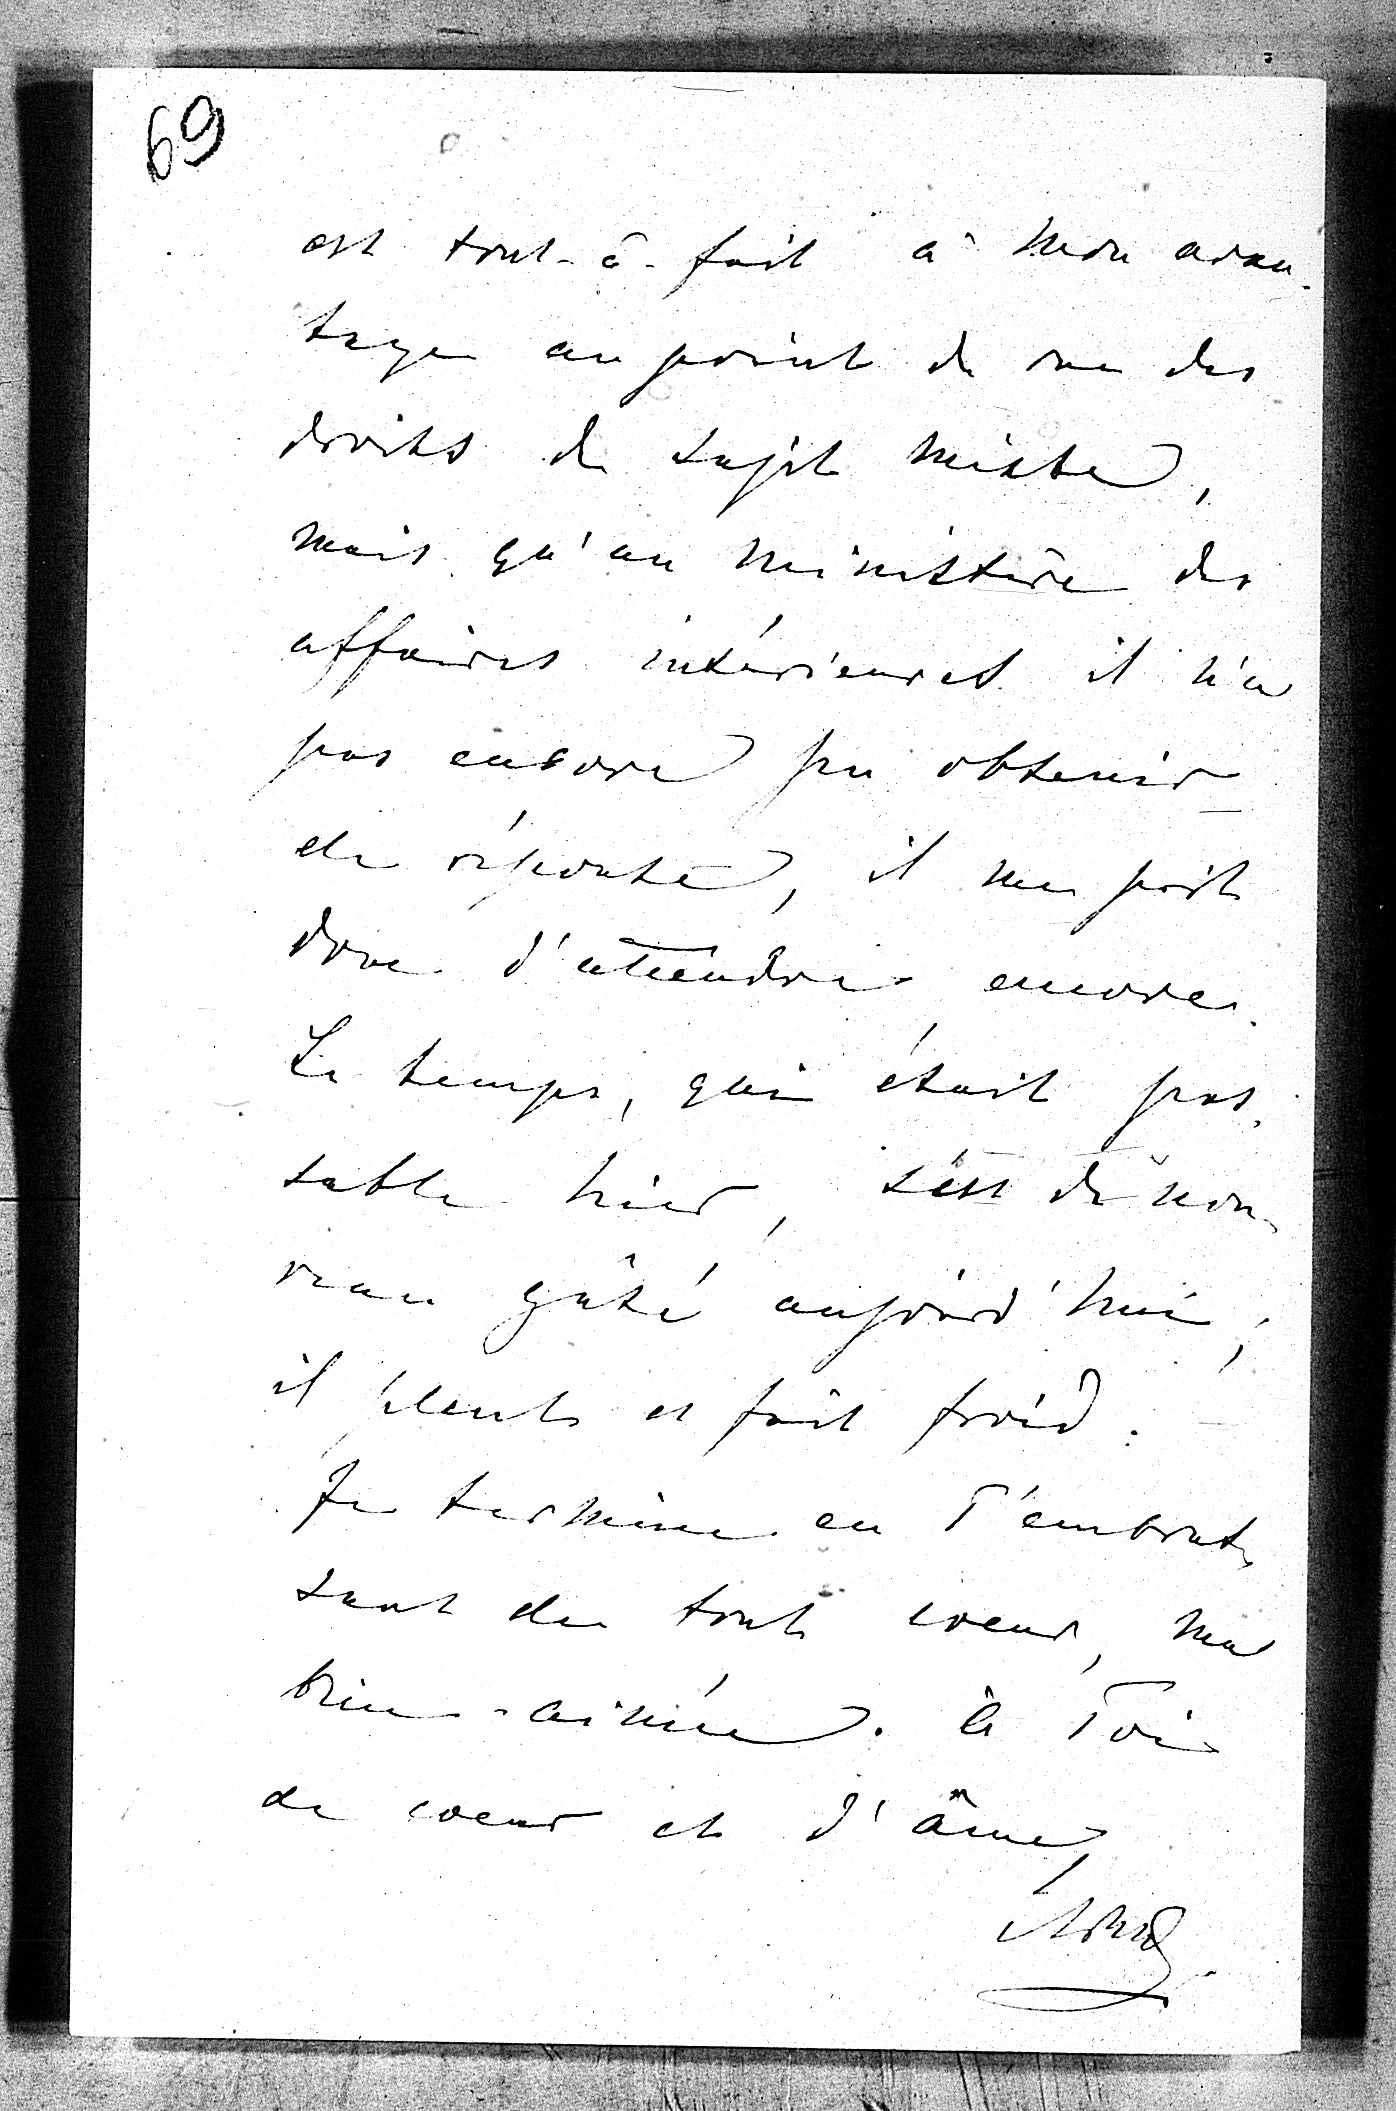 69
est tout-à-fait à mon avan-
tage au point de vue des
droits de sujet mixte,
mais qu'au ministère des
affaires intérieures il n'a
pas encore pu obtenir
de réponse, il me prit
donc d'attendre encore.
Le temps, qui était pas-
sable hier, s'est de nou-
veau gâté aujourd'hui;
il pleut et fait froid.
Je termine en T'embras-
sant de tout coeur, ma
bien-aimée. à Toi
de coeur et d'âme,